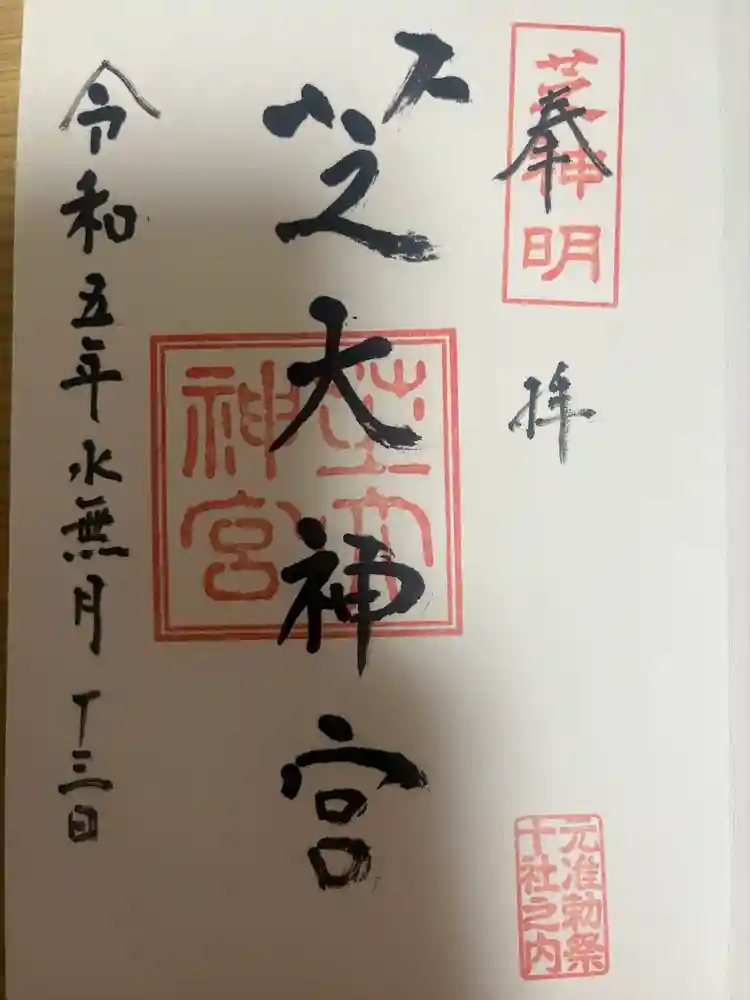 奉拝
芝神明
元准勅祭
十社之内
芝大神宮
芝大
神宮
令和五年水無月十三日